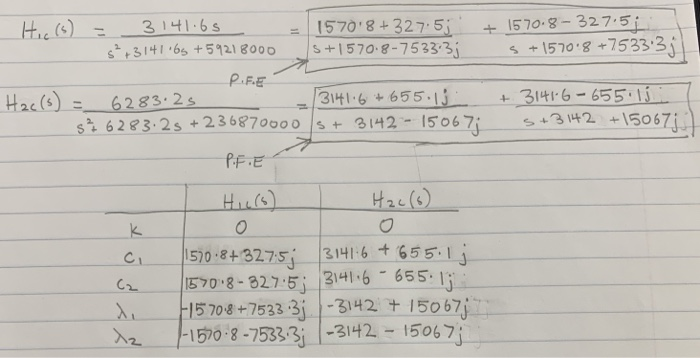 H1c(s) = 3141.6s / s²+3141.6s+59218000 = 1570.8+327.5j / s+1570.8-7533.3j + 1570.8-327.5j / s+1570.8+7533.3j
P.F.E
H2c(s) = 6283.2s / s²+6283.2s+236870000 = 3141.6+655.1j / s+3142-15067j + 3141.6-655.1j / s+3142+15067j
P.F.E
H1c(s) H2c(s)
K 0 0
C1 1570.8+327.5j 3141.6+655.1j
C2 1570.8-327.5j 3141.6-655.1j
λ1 -1570.8+7533.3j -3142+15067j
λ2 -1570.8-7533.3j -3142-15067j